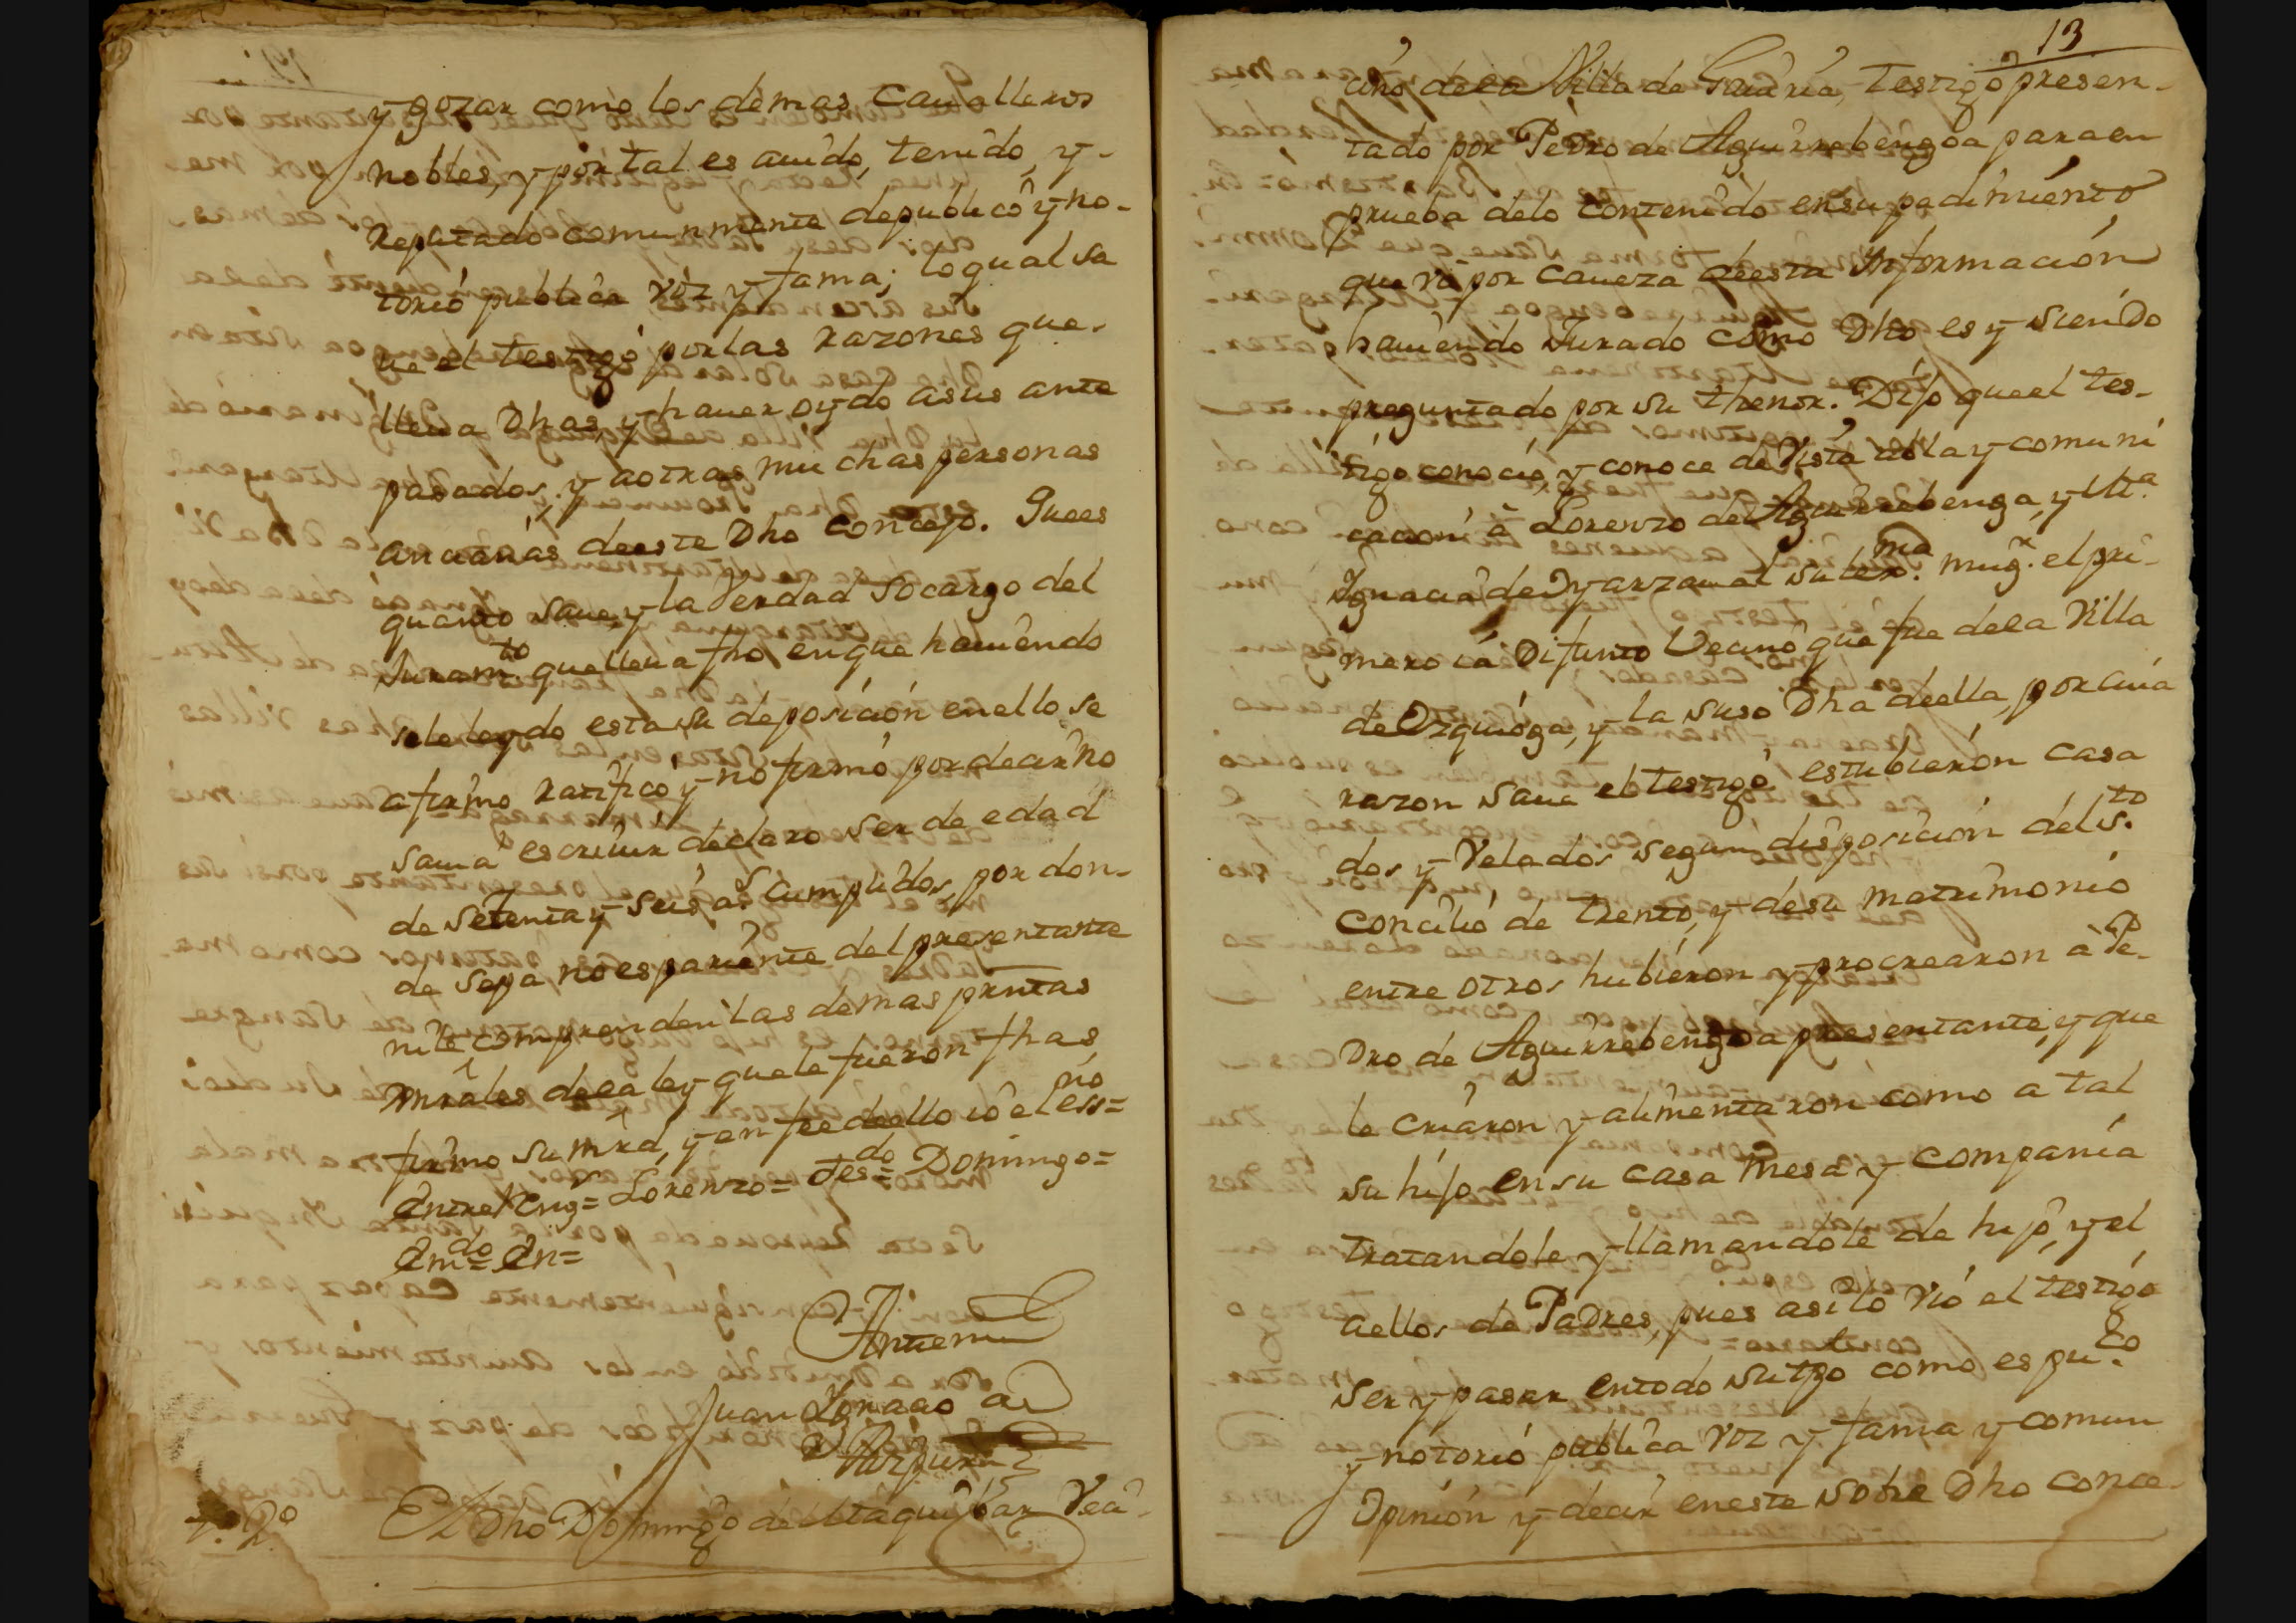 y gozar como los demas Cavalleros
nobles, y por tal es auido, tenido, y
Reputado comunmente de publico y no-
torio publica voz y fama; lo qual sa
ue el testigo por las razones que
lleua Dhas, y hauer oydo a sus ante
pasados, y a otras muchas personas
ancianas de este Dho Concejo. Que es
quanto saue, y la Verdad so cargo del
Juram.to que lleua fho, en que hauiendo
sele leydo esta su deposicion en ello se
afirmo ratifico y no firmó por decir no
sauia escriuir declaro ser de edad
de setenta y seis a.s cumplidos, por don-
de sepa no es pariente del presentante
ni le comprenden las demas prntas
Gnrales de la ley que le fueron fhas,
firmo su mrd, y en fee de ello io el ess.no=
Entre Reng.s= Lorenzo= Tes.do= Domingo=
Em.do= En=
Antemi
Juan Ignacio de
t.o 2.o El Dho Domingo de Vtaquibar Veci-
13
cino de la Villa de Gauiria, Testigo presen-
tado por Pedro de Aguirrebengoa para en
prueba de lo contenido en su pedimiento
que vá por caueza de esta Informacion
hauiendo Jurado como Dho es y siendo
preguntado por su thenor. Dijo que el tes-
tigo conoció, y conoce de Vista abla y comuni
cacion á Lorenzo de Aguirrebenga, y M.a
Ignacia de Oyarzaual su lex.ma mug.r el pri-
mero iá Difunto Vecino que fue de la Villa
de Ozquioga, y la suso Dha de ella, por cuia
razon saue el testigo estubieron casa
dos y Velados segun disposicion del s.to
Concilio de trento, y de su matrimonio
entre otros hubieron y procrearon á Pe-
dro de Aguirrebengoa presentante, y que
le criaron y alimentaron como a tal
su hijo en su casa mesa y compania
tratandole y llamandole de hijo, y el
a ellos de Padres, pues asi lo vió el testigo
ser y pasar en todo su tpo como es pu.co
y notorio publica voz y fama y comun
Opinion y decir en este sobre Dho conce-